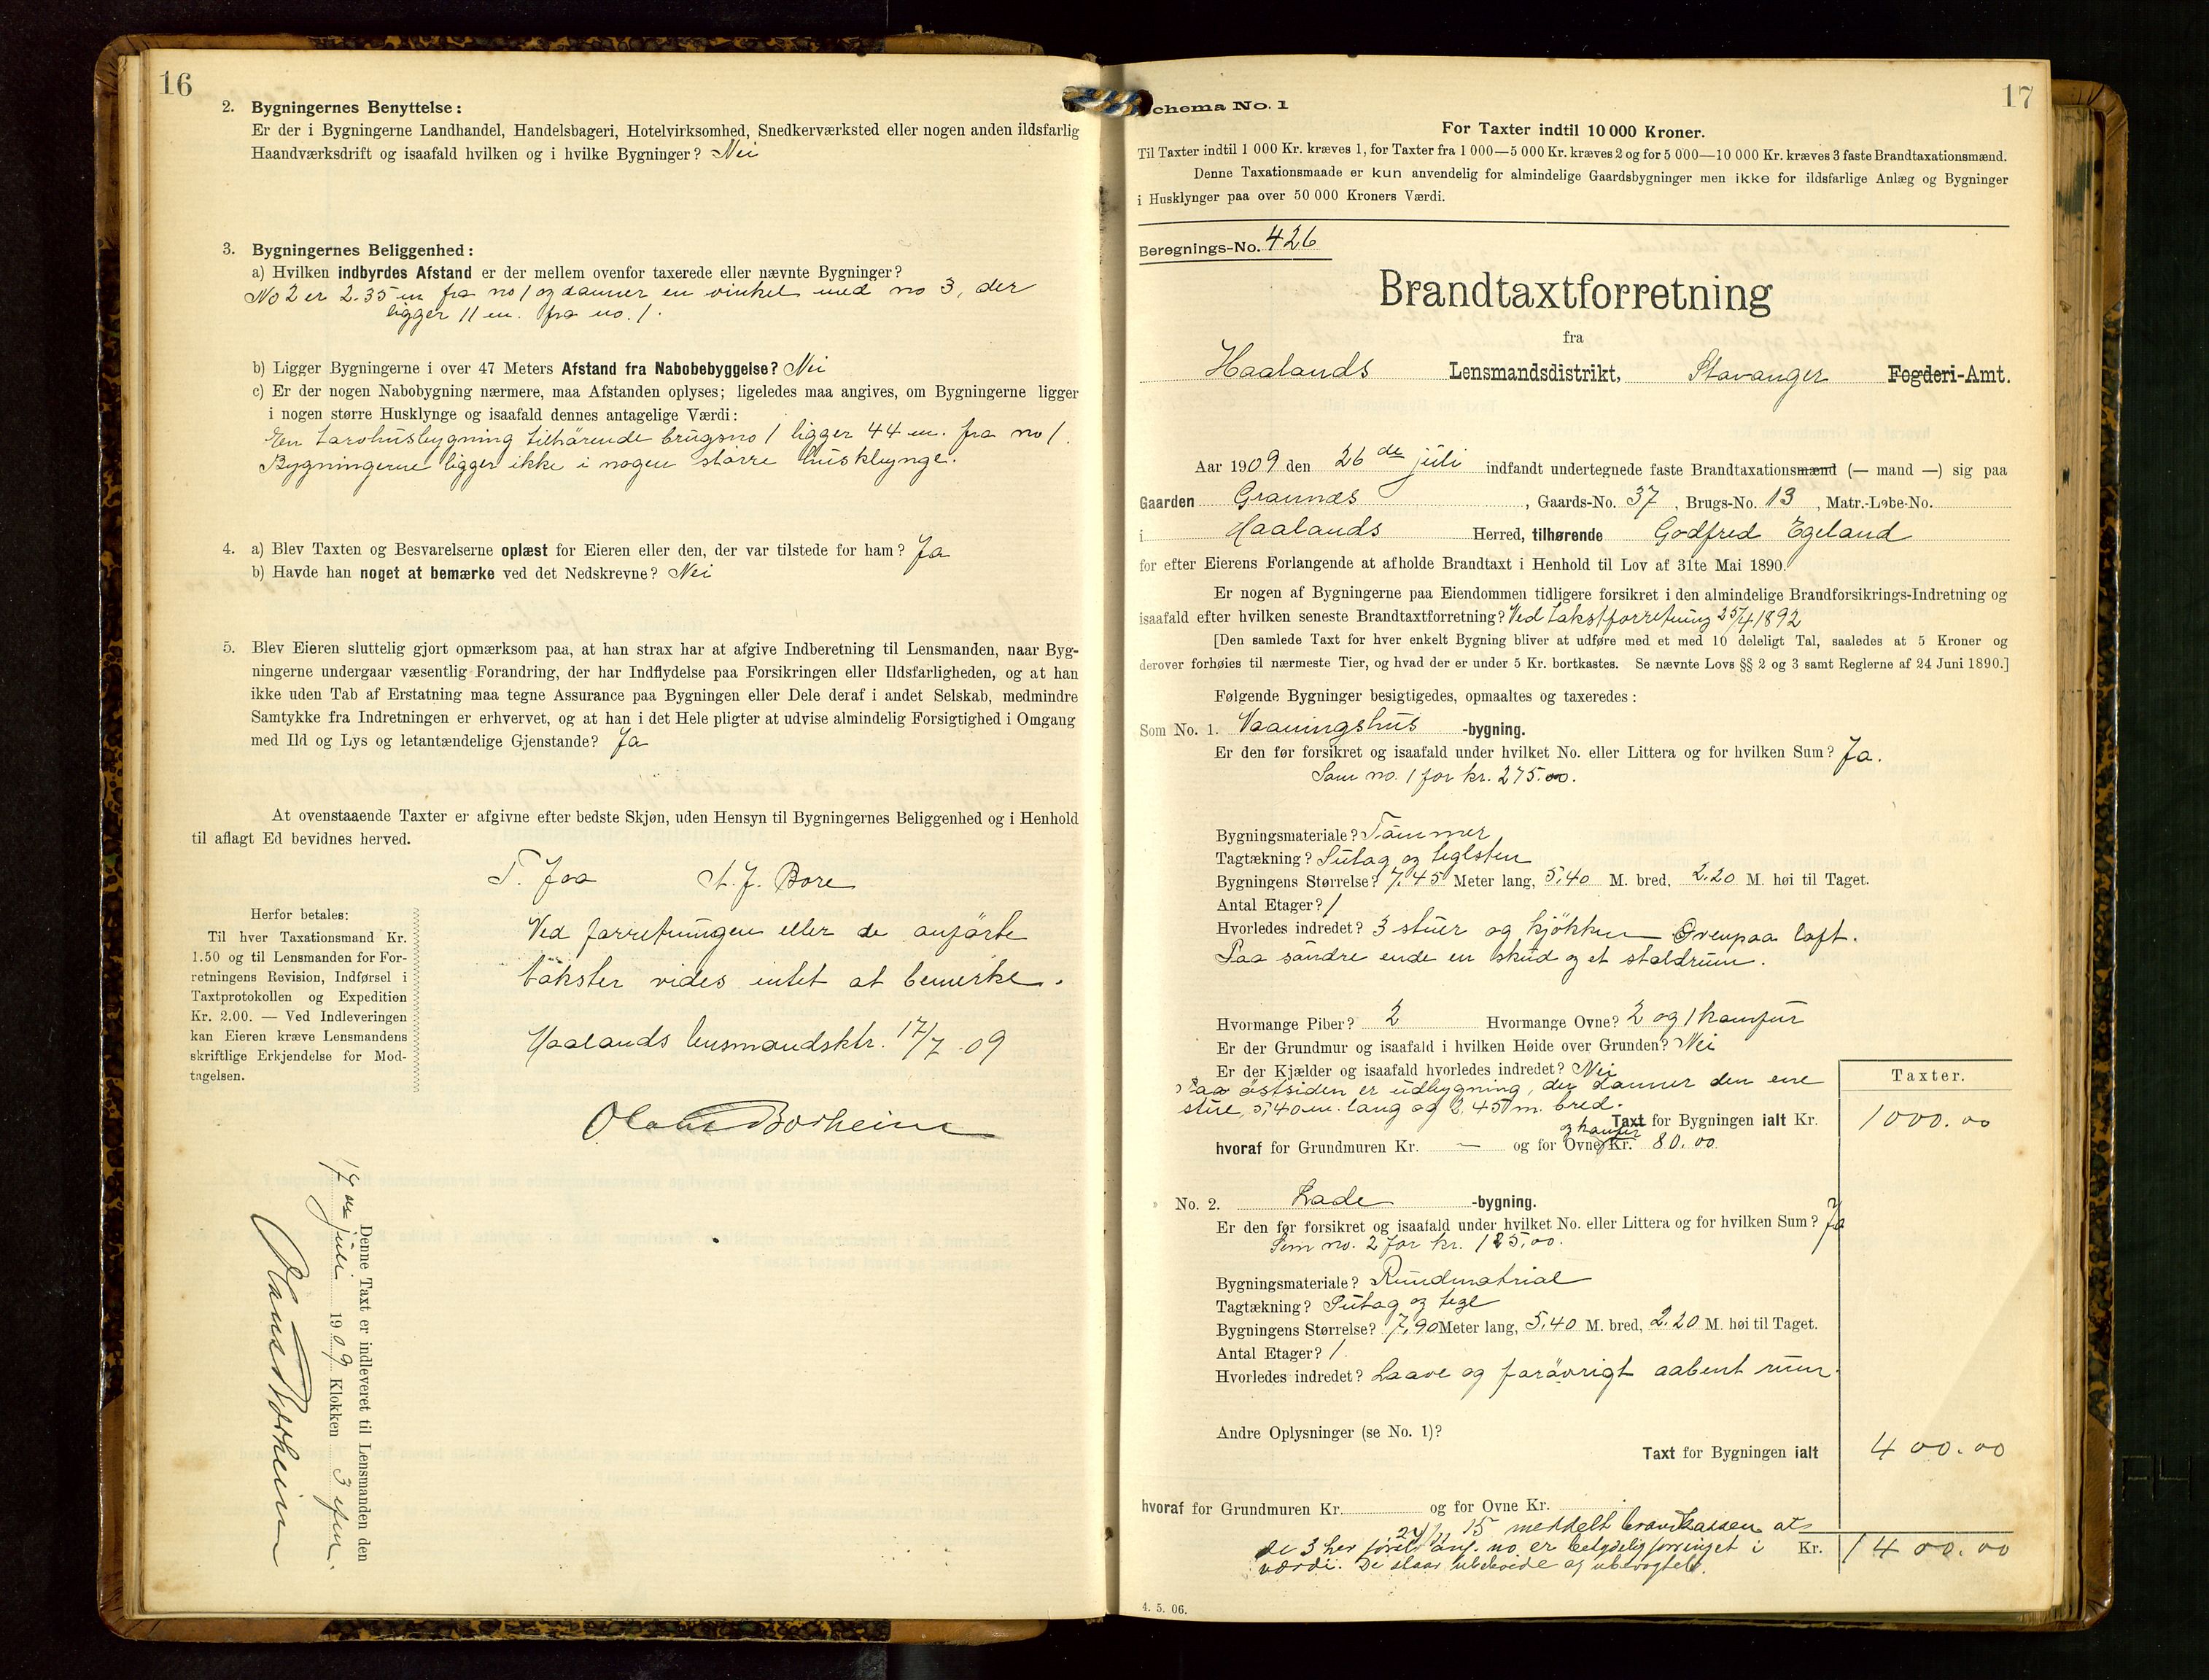 16
2. Bygningernes Benyttelse:
Er der i Bygningerne Landhandel, Handelsbageri, Hotelvirksomhed, Snedkerværksted eller nogen anden ildsfarlig
Haandværksdrift og isaafald hvilken og i hvilke Bygninger? Nei
3. Bygningernes Beliggenhed:
a) Hvilken indbyrdes Afstand er der mellem ovenfor taxerede eller nævnte Bygninger?
No 2 er 2.35 m fra no 1 og danner en vinkel med no 3, der
ligger 11 m. fra no. 1.
b) Ligger Bygningerne i over 47 Meters Afstand fra Nabobebyggelse? Nei
c) Er der nogen Nabobygning nærmere, maa Afstanden oplyses; ligeledes maa angives, om Bygningerne ligger
i nogen større Husklynge og isaafald dennes antagelige Værdi:
En tarvhusbygning tilhørende brugsno 1 ligger 44 m. fra no 1.
Bygningerne ligger ikke i nogen større husklynge.
4. a) Blev Taxten og Besvarelserne oplæst for Eieren eller den, der var tilstede for ham? Ja
b) Havde han noget at bemærke ved det Nedskrevne? Nei
5. Blev Eieren sluttelig gjort opmærksom paa, at han strax har at afgive Indberetning til Lensmanden, naar Byg-
ningerne undergaar væsentlig Forandring, der har Indflydelse paa Forsikringen eller Ildsfarligheden, og at han
ikke uden Tab af Erstatning maa tegne Assurance paa Bygningen eller Dele deraf i andet Selskab, medmindre
Samtykke fra Indretningen er erhvervet, og at han i det Hele pligter at udvise almindelig Forsigtighed i Omgang
med Ild og Lys og letantændelige Gjenstande? Ja
At ovenstaaende Taxter er afgivne efter bedste Skjøn, uden Hensyn til Bygningernes Beliggenhed og i Henhold
til aflagt Ed bevidnes herved.
T. Joa A. J. Bore
Ved forretningen eller de anførte
takster vides intet at bemerke.
Haalands lensmandsktr. 17/7 09
Olaus Borheim
Herfor betales:
Til hver Taxationsmand Kr.
1.50 og til Lensmanden for For-
retningens Revision, Indførsel i
Taxtprotokollen og Expedition
Kr. 2.00. — Ved Indleveringen
kan Eieren kræve Lensmandens
skriftlige Erkjendelse for Mod-
tagelsen.
Denne Taxt er indleveret til Lensmanden den
17 de juli 1909 Klokken 3 efm.
Olaus Borheim
17
Schema No. 1
For Taxter indtil 10 000 Kroner.
Til Taxter indtil 1 000 Kr. kræves 1, for Taxter fra 1 000—5 000 Kr. kræves 2 og for 5 000—10 000 Kr. kræves 3 faste Brandtaxationsmænd.
Denne Taxationsmaade er kun anvendelig for almindelige Gaardsbygninger men ikke for ildsfarlige Anlæg og Bygninger
i Husklynger paa over 50 000 Kroners Værdi.
Beregnings-No. 426
Brandtaxtforretning
fra
Haalands Lensmandsdistrikt, Stavanger Fogderi-Amt.
Aar 1909 den 26 de juli indfandt undertegnede faste Brandtaxationsmænd (— mand —) sig paa
Gaarden Grannæs, Gaards-No. 37, Brugs-No. 13, Matr.-Løbe-No.
i Haalands Herred, tilhørende Godfred Egeland
for efter Eierens Forlangende at afholde Brandtaxt i Henhold til Lov af 31te Mai 1890.
Er nogen af Bygningerne paa Eiendommen tidligere forsikret i den almindelige Brandforsikrings-Indretning og
isaafald efter hvilken seneste Brandtaxtforretning? Ved takstforretning 25/4 1892
[Den samlede Taxt for hver enkelt Bygning bliver at udføre med et med 10 deleligt Tal, saaledes at 5 Kroner og
derover forhøies til nærmeste Tier, og hvad der er under 5 Kr. bortkastes. Se nævnte Lovs §§ 2 og 3 samt Reglerne af 24 Juni 1890.]
Følgende Bygninger besigtigedes, opmaaltes og taxeredes:
Som No. 1. Vaaningshus -bygning.
Er den før forsikret og isaafald under hvilket No. eller Littera og for hvilken Sum? Ja.
Som no. 1 for kr. 275.00.
Bygningsmateriale? Tømmer
Tagtækning? Sutag og teglsten
Bygningens Størrelse? 7,45 Meter lang, 5,40 M. bred, 2.20 M. høi til Taget.
Antal Etager? 1
Hvorledes indredet? 3 stuer og kjøkken Ovenpaa loft.
Paa søndre ende en skud og et staldrum.
Hvormange Piber? 2 Hvormange Ovne? 2 og 1 komfur
Er der Grundmur og isaafald i hvilken Høide over Grunden? Nei
Er der Kjælder og isaafald hvorledes indredet? Nei
Paa østsiden er udbygning, der danner den ene
stue, 5,40 m. lang og 2.45 m. bred.
Taxter.
Taxt for Bygningen ialt Kr. 1000.00
hvoraf for Grundmuren Kr. — og for Ovne og komfur Kr. 80.00
No. 2. Lade -bygning.
Er den før forsikret og isaafald under hvilket No. eller Littera og for hvilken Sum? Ja
Som no. 2 for kr. 125,00.
Bygningsmateriale? Rundmatrial
Tagtækning? Sutag og tegl
Bygningens Størrelse? 7,90 Meter lang, 5,40 M. bred, 2.20 M. høi til Taget.
Antal Etager? 1
Hvorledes indredet? Laave og forøvrigt aabent rum.
Andre Oplysninger (se No. 1)?
Taxt for Bygningen ialt 400.00
hvoraf for Grundmuren Kr. og for Ovne Kr.
24/11 15 meddelt brandkassen at
de 3 her no er betydelig forringet i
værdi. De staar ubeboede og
Kr. 1400.00
4. 5. 06.